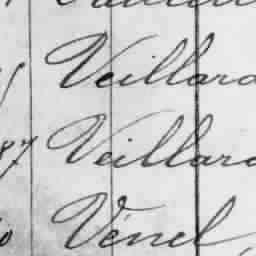 Veillard
87 Veillard
Vénel